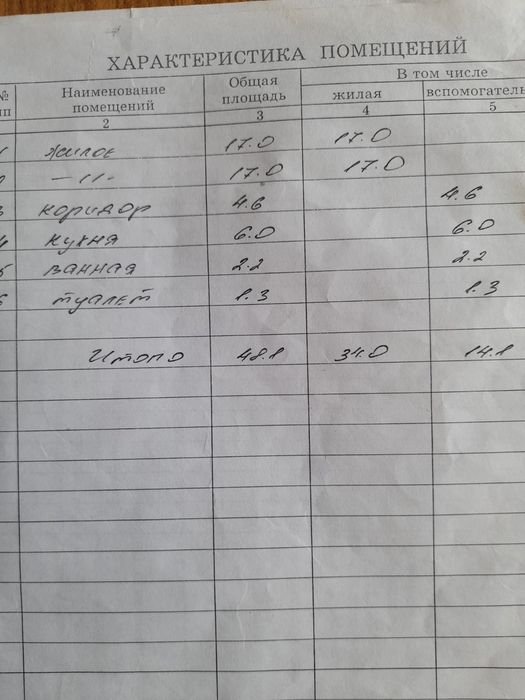 ХАРАКТЕРИСТИКА ПОМЕЩЕНИЙ
№ Наименование помещений Общая площадь В том числе
жилая вспомогатель
2 3 4 5
1 жилое 17.0 17.0
2 — 11 - 17.0 17.0
3 коридор 4.6 4.6
4 кухня 6.0 6.0
5 ванная 2.2 2.2
6 туалет 1.3 1.3
Итого 48.1 34.0 14.1